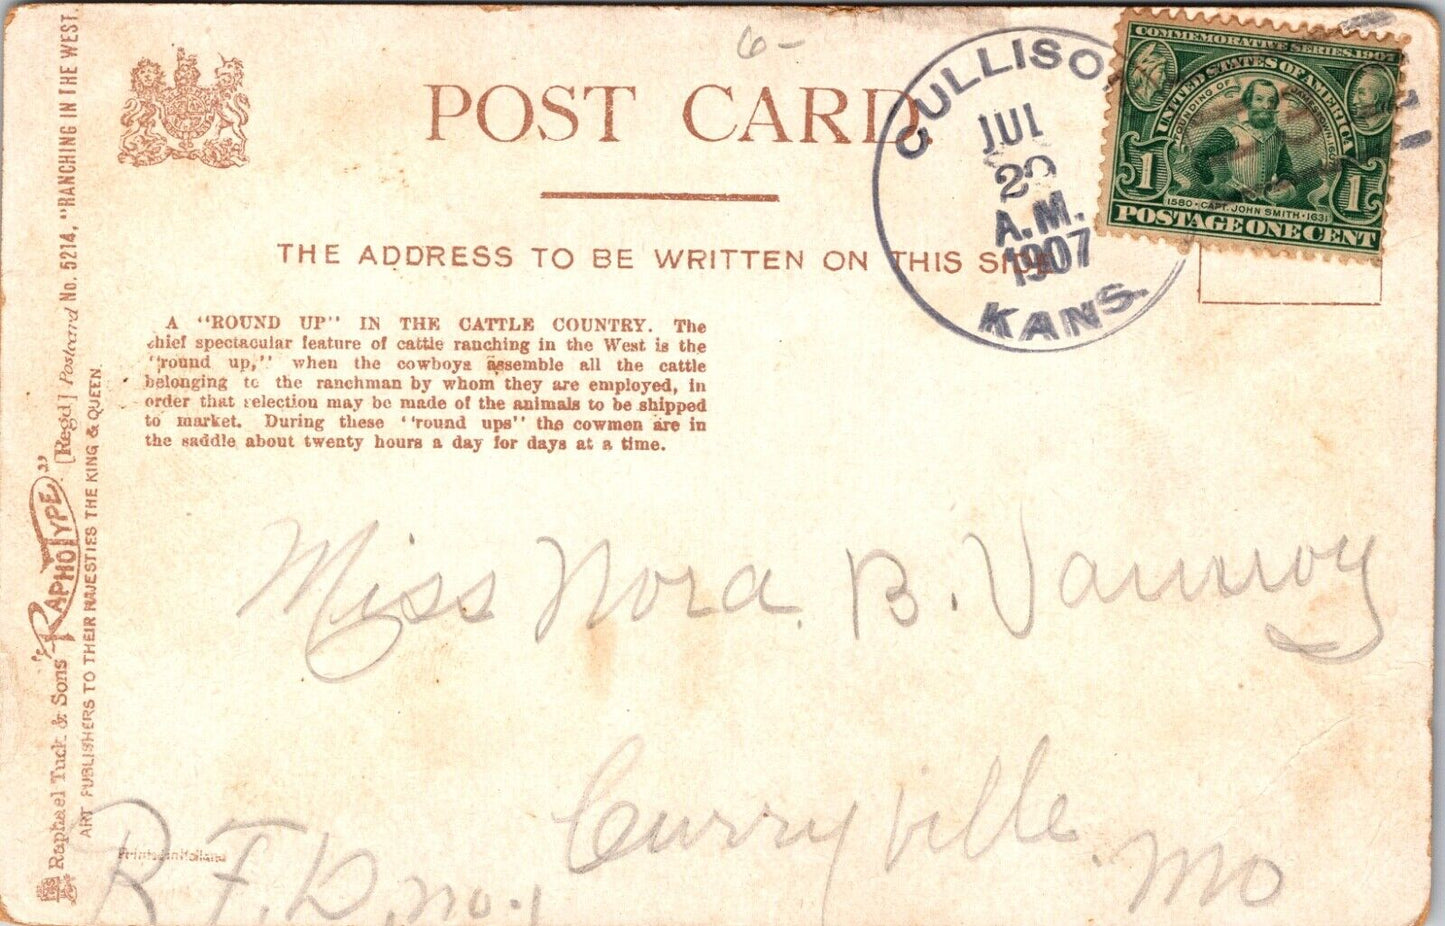 6-
POST CARD.
THE ADDRESS TO BE WRITTEN ON THIS SIDE
CULLISON
JUL
A.M.
1907
KANS.
COMMEMORATIVE SERIES 1907
UNITED STATES OF AMERICA
FOUNDING OF JAMESTOWN 1607
1 1
1580 · CAPT. JOHN SMITH · 1631
POSTAGE ONE CENT
A "ROUND UP" IN THE CATTLE COUNTRY. The
chief spectacular feature of cattle ranching in the West is the
"round up," when the cowboys assemble all the cattle
belonging to the ranchman by whom they are employed, in
order that selection may be made of the animals to be shipped
to market. During these "round ups" the cowmen are in
the saddle about twenty hours a day for days at a time.
Miss Nora B. Vannoy
Curryville Mo
R.F.D. no. 1
Printed in Holland
Raphael Tuck & Sons "RAPHOTYPE" [Regd] Postcard No. 5214, "RANCHING IN THE WEST.
ART PUBLISHERS TO THEIR MAJESTIES THE KING & QUEEN.